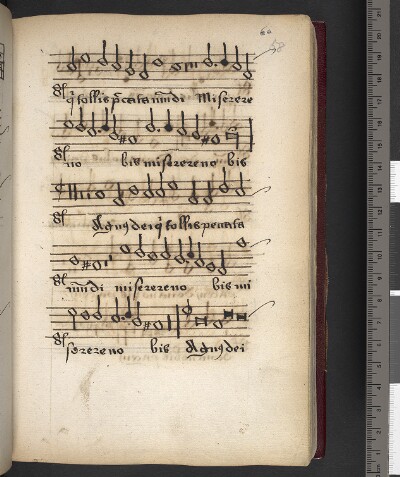 58
q̄ tollis pc̄cata mūdi Miserere
no bis miserere no bis
Agnus dei q̄ tollis peccata
mūdi miserere no bis mi
serere no bis Agnus dei